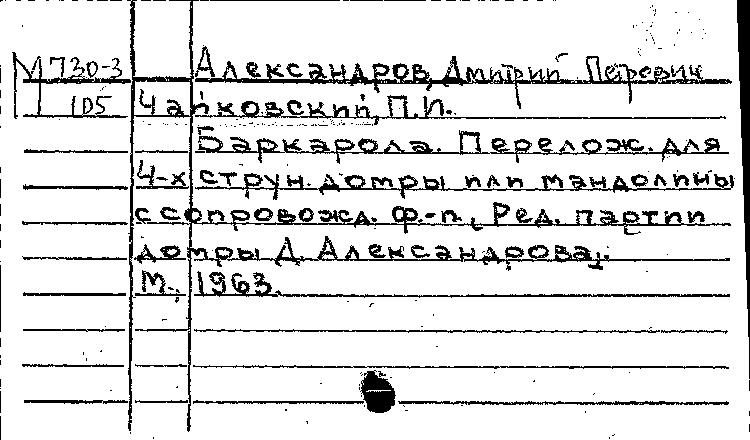 М 730-3 Александров, Дмитрий Петрович
105 Чайковский, П.И.
Баркарола. Перелож. для
4-х струн. домры или мандолины
с сопровожд. ф.-п., Ред. партии
домры Д. Александрова.
М., 1963.